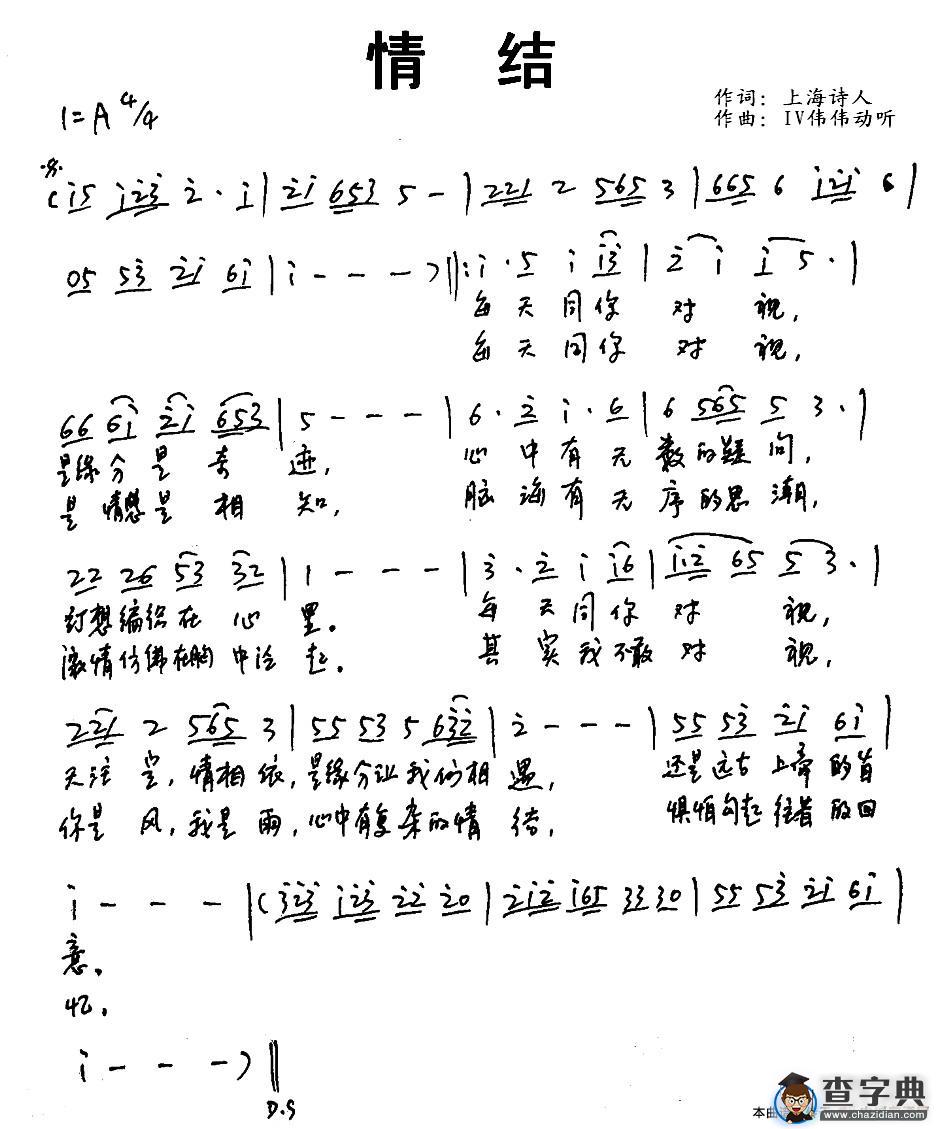 情 结
作词：上海诗人
1=A 4/4
作曲：IV伟伟动听
( i̇5 i̇2̇3̇ 2̇ · i̇ | 2̇i̇ 653 5 - | 221 2 565 3 | 665 6 i̇2̇i̇ 6 |
05 53̇ 2̇i̇ 6i̇ | i̇ - - - ) ‖: i̇ · 5 i̇ i̇3̇ | 2̇ i̇ i̇ 5 · |
每天同你对视，
每天同你对视，
66 6i̇ 2̇i̇ 653 | 5 - - - | 6 · 2̇ i̇ · 6 | 6 565 5 3 · |
是缘分是奇迹， 心中有无数的疑问，
是情感是相知， 脑海有无序的思潮，
22 26 53 32 | 1 - - - | 3̇ · 2̇ i̇ i̇6 | i̇2̇ 65 5 3 · |
幻想编织在心里。 每天同你对视，
激情仿佛在胸中泛起。 其实我不敢对视，
221 2 565 3 | 55 53 5 63̇2̇ | 2̇ - - - | 55 53̇ 2̇i̇ 6i̇ |
天注定，情相依，是缘分让我们相遇， 还是远古上帝的旨
你是风，我是雨，心中有复杂的情绪， 惧怕勾起往昔的回
i̇ - - - | ( 3̇2̇3̇ i̇2̇3̇ 2̇2̇ 2̇0 | 2̇i̇2̇ i̇65 33 30 | 55 53̇ 2̇i̇ 6i̇ |
意。
忆。
i̇ - - - ) ‖
D.S
本曲
查字典
www.chazidian.com